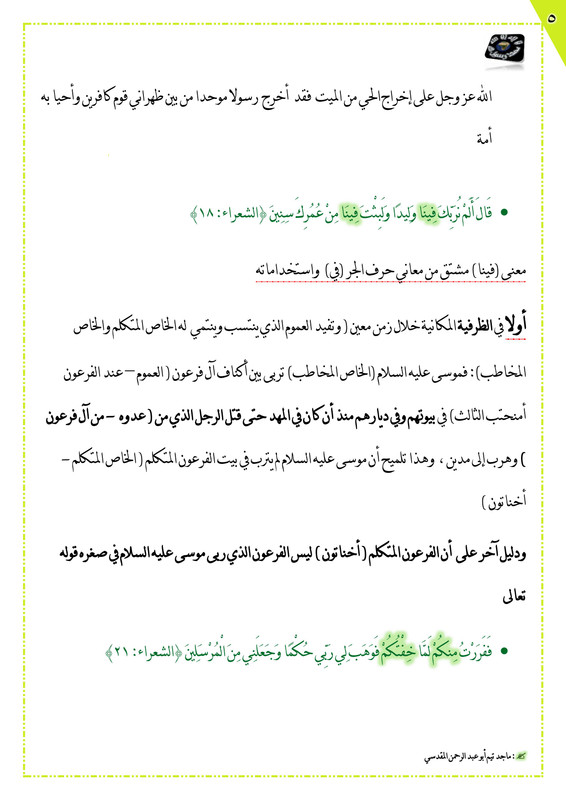 ٥
الله عز وجل على إخراج الحي من الميت فقد أخرج رسولا موحدا من بين ظهراني قوم كافرين وأحيا به
أمة
• قَالَ أَلَمْ نُرَبِّكَ فِينَا وَلِيدًا وَلَبِثْتَ فِينَا مِنْ عُمُرِكَ سِنِينَ ﴿الشعراء: ١٨﴾
معنى (فينا) مشتق من معاني حرف الجر (في) واستخداماته
أولا في الظرفية المكانية خلال زمن معين ( وتفيد العموم الذي ينتسب وينتمي له الخاص المتكلم والخاص
المخاطب) : فموسى عليه السلام (الخاص المخاطب) تربى بين أكناف آل فرعون ( العموم – عند الفرعون
أمنحتب الثالث) في بيوتهم وفي ديارهم منذ أن كان في المهد حتى قتل الرجل الذي من ( عدوه – من آل فرعون
) وهرب إلى مدين ، وهذا تلميح أن موسى عليه السلام لم يترب في بيت الفرعون المتكلم ( الخاص المتكلم –
أخناتون )
ودليل آخر على أن الفرعون المتكلم ( أخناتون ) ليس الفرعون الذي ربى موسى عليه السلام في صغره قوله
تعالى
• فَفَرَرْتُ مِنكُمْ لَمَّا خِفْتُكُمْ فَوَهَبَ لِي رَبِّي حُكْمًا وَجَعَلَنِي مِنَ الْمُرْسَلِينَ ﴿الشعراء: ٢١﴾
: ماجد تيم أبو عبد الرحمن المقدسي